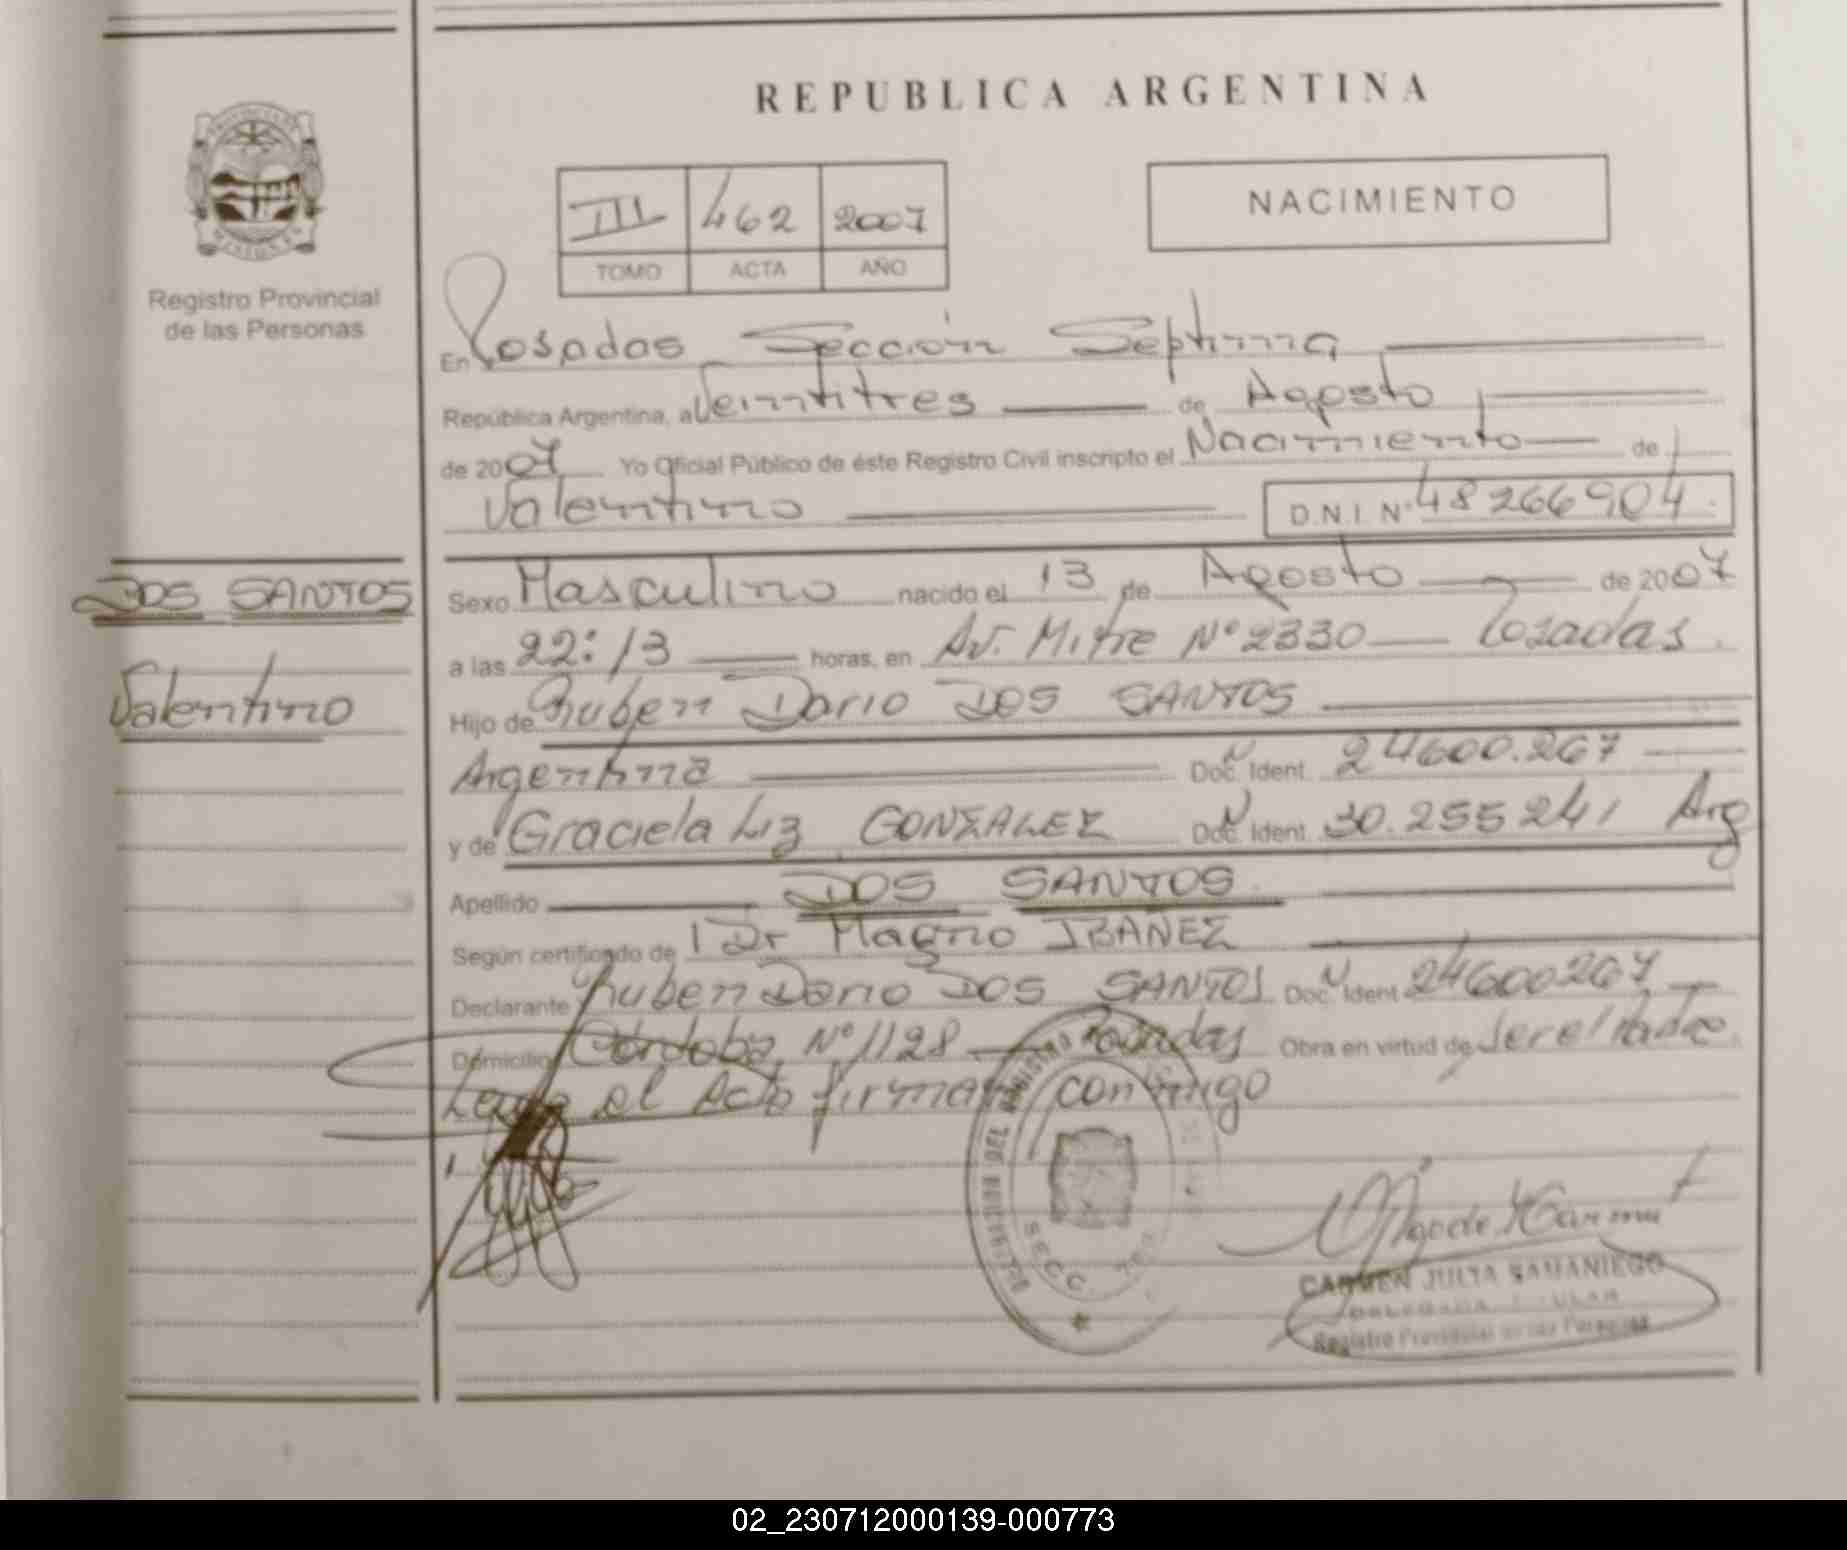 REPUBLICA ARGENTINA
PROVINCIA DE
MISIONES
Registro Provincial
de las Personas
III 462 2007
TOMO ACTA AÑO
NACIMIENTO
En Posadas Sección Septima
República Argentina, a Veintitres de Agosto
de 2007 Yo Oficial Público de éste Registro Civil inscripto el Nacimiento de
Valentino D.N.I. Nº 48266904
DOS SANTOS
Valentino
Sexo Masculino nacido el 13 de Agosto de 2007
a las 22:13 horas, en Av. Mitre Nº 2330 Posadas
Hijo de Ruben Dario DOS SANTOS
Argentina Doc. Ident. 24600.267
y de Graciela Liz GONZALEZ Doc. Ident. 30.255241 Arg
Apellido DOS SANTOS
Según certificado de l Dr Magno IBAÑEZ
Declarante Ruben Dario DOS SANTOS Doc. Ident. 24600267
Domicilio Córdoba Nº 1128 Posadas Obra en virtud de ser el Padre
Leida el Acta firman conmigo
SECC.
CARMEN JULIA SAMANIEGO
DELEGADA TITULAR
Registro Provincial de las Personas
02_230712000139-000773